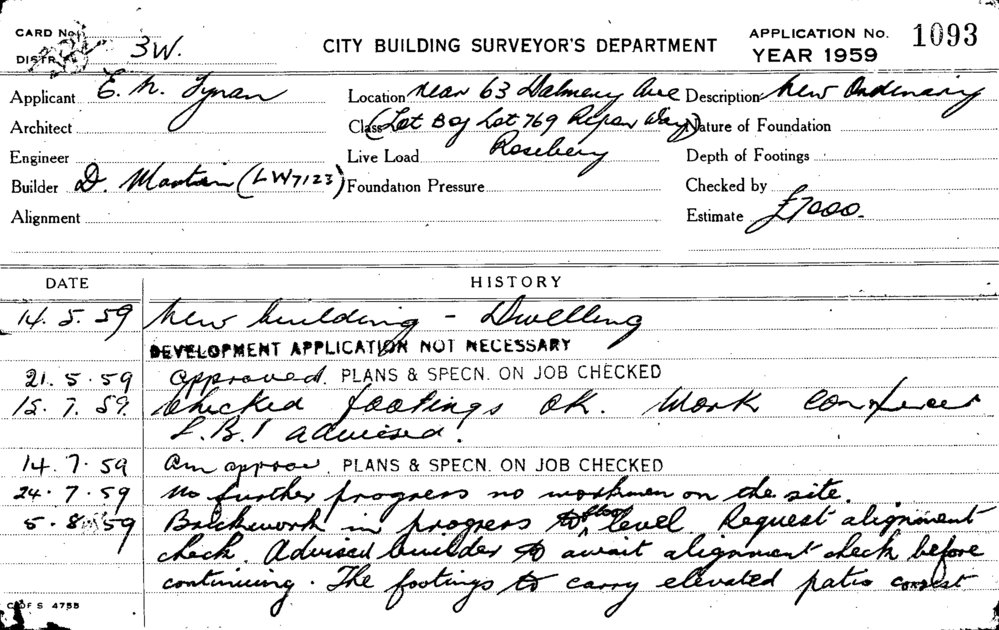 CARD No.
DISTR. 3W.
CITY BUILDING SURVEYOR'S DEPARTMENT
APPLICATION No. 1093
YEAR 1959
Applicant E. N. Tynan
Location Rear 63 Dalmeny Ave
Description New Ordinary
Architect
Class (Lot B of Lot 769 Way)
Nature of Foundation
Engineer
Live Load Rosebery
Depth of Footings
Builder D. Martin (LW7123)
Foundation Pressure
Checked by
Alignment
Estimate £7000.
DATE HISTORY
14.5.59 New building - Dwelling
DEVELOPMENT APPLICATION NOT NECESSARY
21.5.59 Approved. PLANS & SPECN. ON JOB CHECKED
15.7.59. Checked footings OK. Work
L.B.I advised.
14.7.59 Am approv. PLANS & SPECN. ON JOB CHECKED
24.7.59 No further progress no workmen on the site.
5.8.59 Brickwork in progress to floor level. Request alignment
check. Advised builder to await alignment check before
continuing. The footings to carry elevated patio correct
S 4755